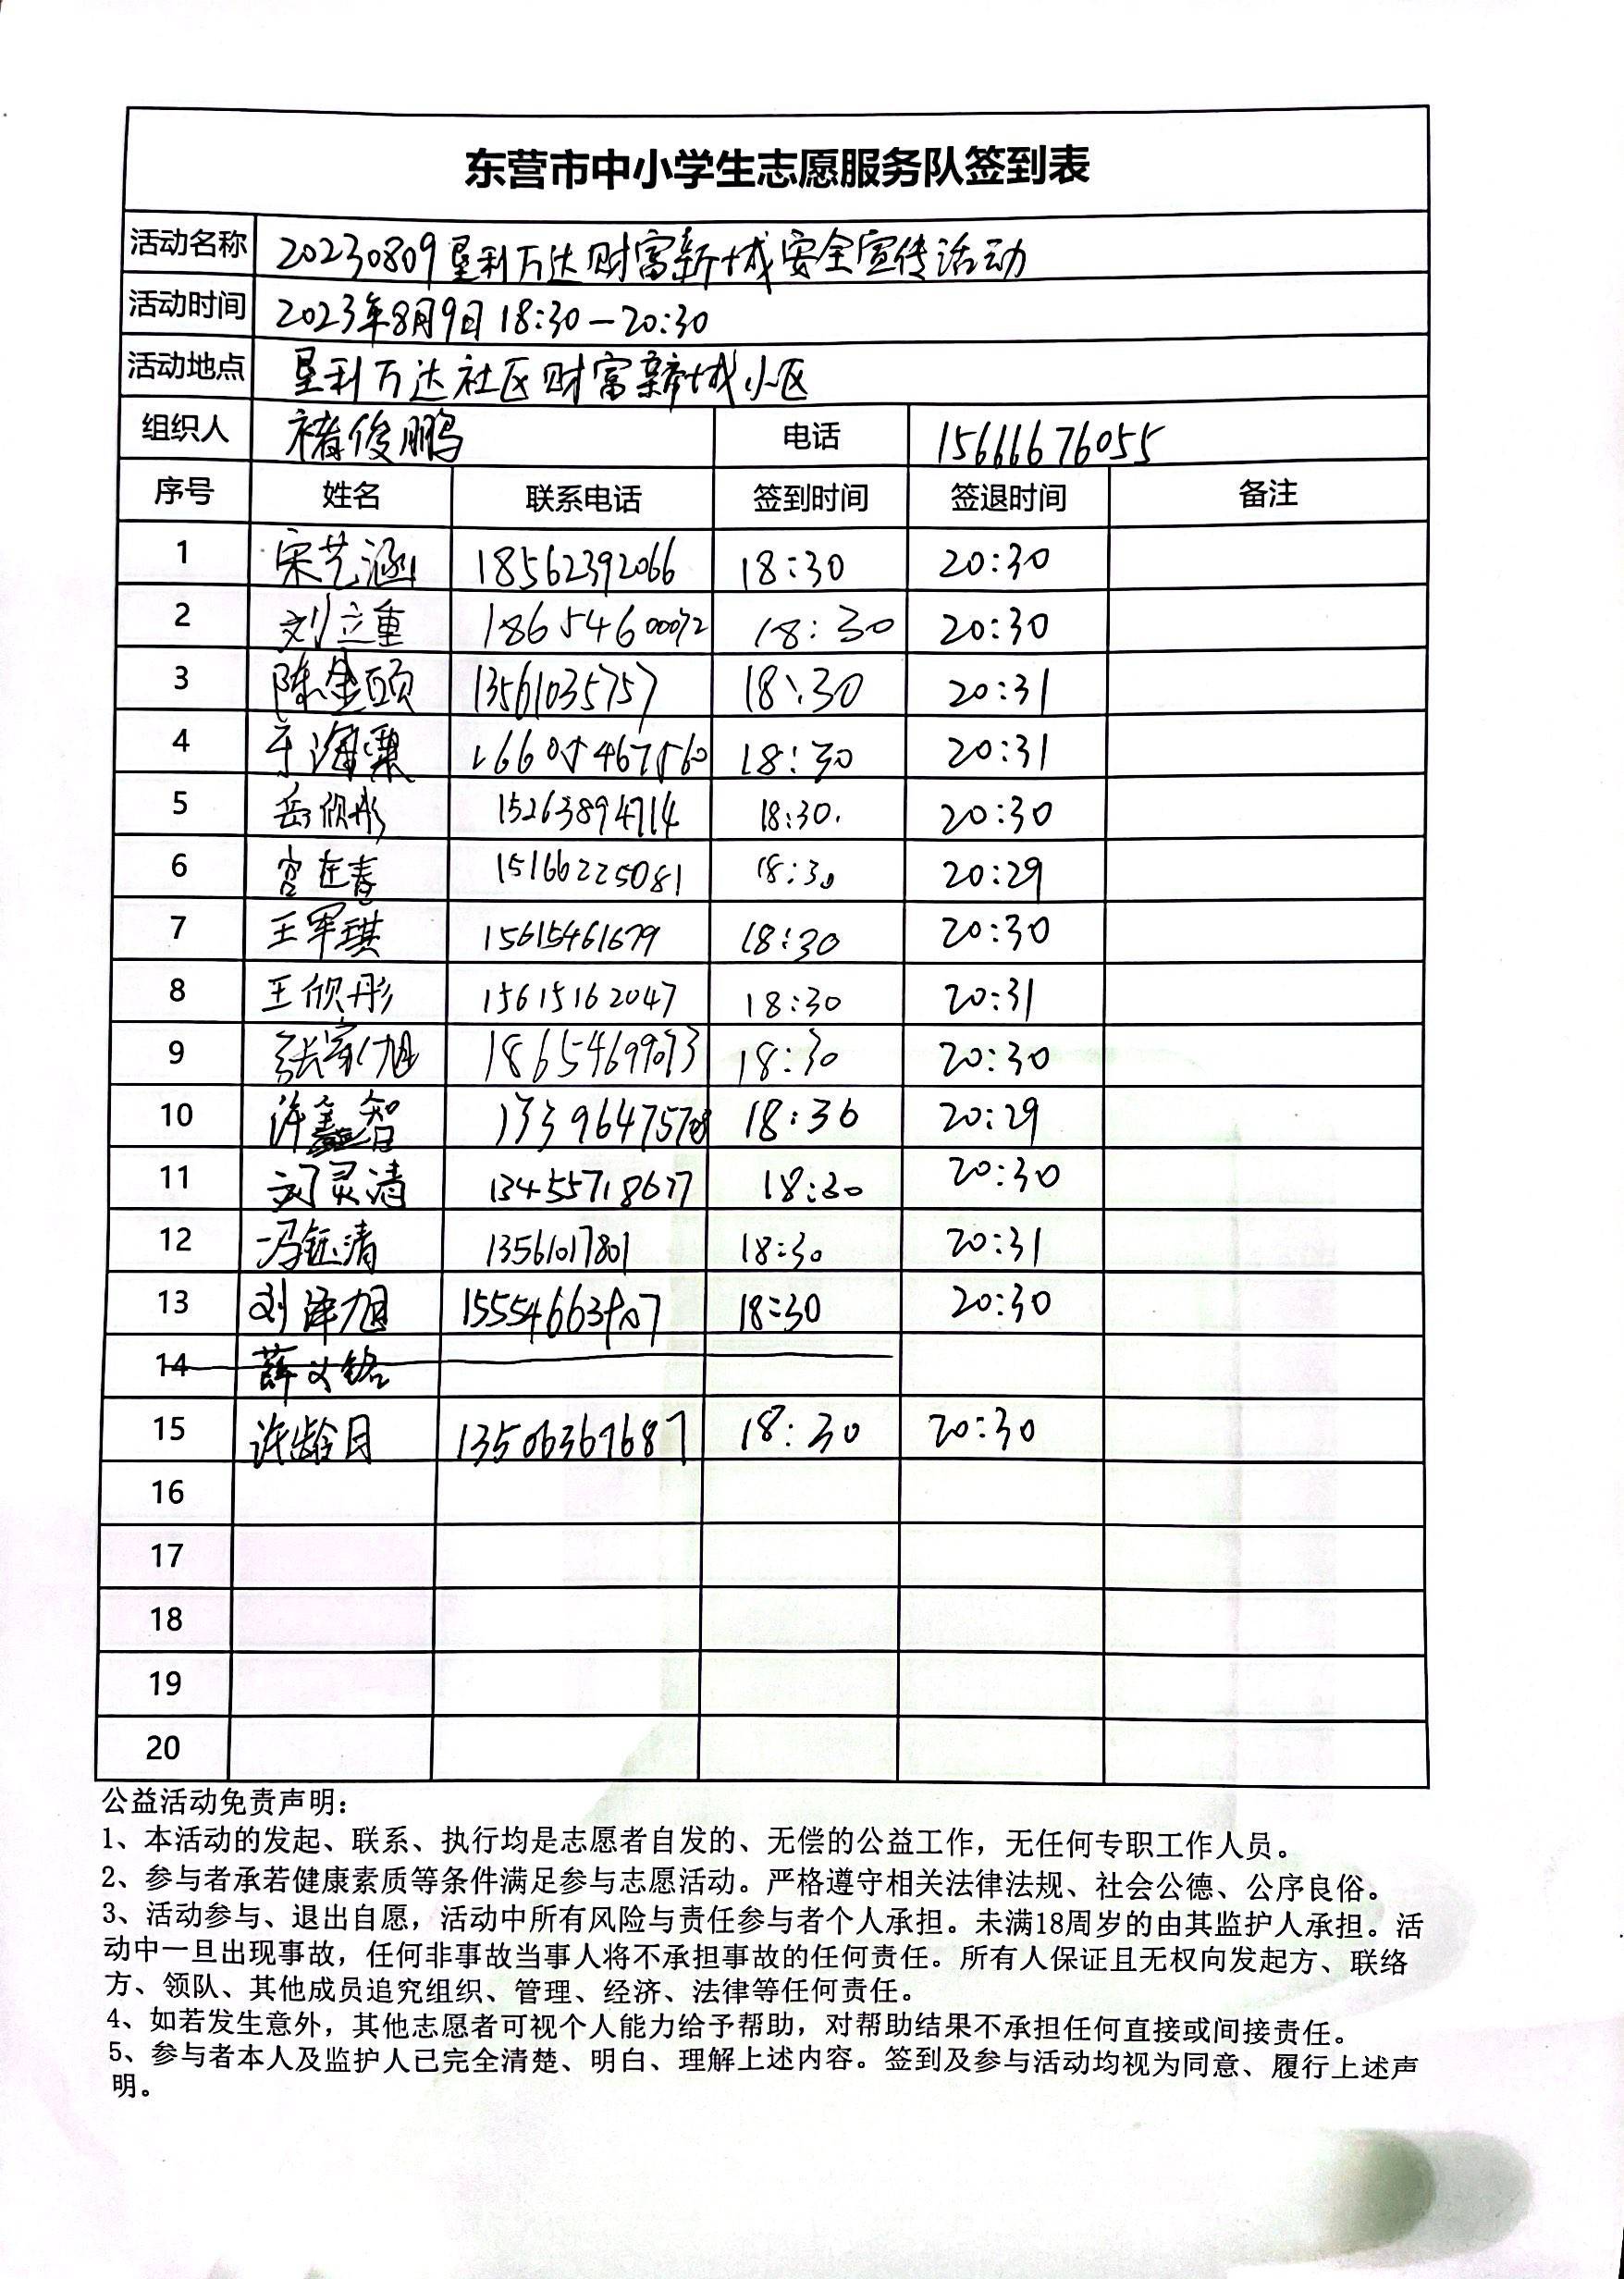 东营市中小学生志愿服务队签到表
活动名称 20230809垦利万达财富新城安全宣传活动
活动时间 2023年8月9日 18:30—20:30
活动地点 垦利万达社区财富新城小区
组织人 褚俊鹏 电话 15666676055
序号 姓名 联系电话 签到时间 签退时间 备注
1 宋艺涵 18562392066 18:30 20:30
2 刘立重 18:30 20:30
3 陈金颐 13561035757 18:30 20:31
4 18:30 20:31
5 岳欣彤 15263894714 18:30. 20:30
6 宫在春 15166225081 18:30 20:29
7 王军琪 15615461679 18:30 20:30
8 王欣彤 15615162047 18:30 20:31
9 张家旭 18654699073 18:30 20:30
10 许鑫智 18:30 20:29
11 刘灵清 13455718677 18:30 20:30
12 冯钰清 13561017801 18:30 20:31
13 刘泽旭 18:30 20:30
14 薛文铭
15 许龄月 13506369687 18:30 20:30
16
17
18
19
20
公益活动免责声明：
1、本活动的发起、联系、执行均是志愿者自发的、无偿的公益工作，无任何专职工作人员。
2、参与者承若健康素质等条件满足参与志愿活动。严格遵守相关法律法规、社会公德、公序良俗。
3、活动参与、退出自愿，活动中所有风险与责任参与者个人承担。未满18周岁的由其监护人承担。活
动中一旦出现事故，任何非事故当事人将不承担事故的任何责任。所有人保证且无权向发起方、联络
方、领队、其他成员追究组织、管理、经济、法律等任何责任。
4、如若发生意外，其他志愿者可视个人能力给予帮助，对帮助结果不承担任何直接或间接责任。
5、参与者本人及监护人已完全清楚、明白、理解上述内容。签到及参与活动均视为同意、履行上述声
明。